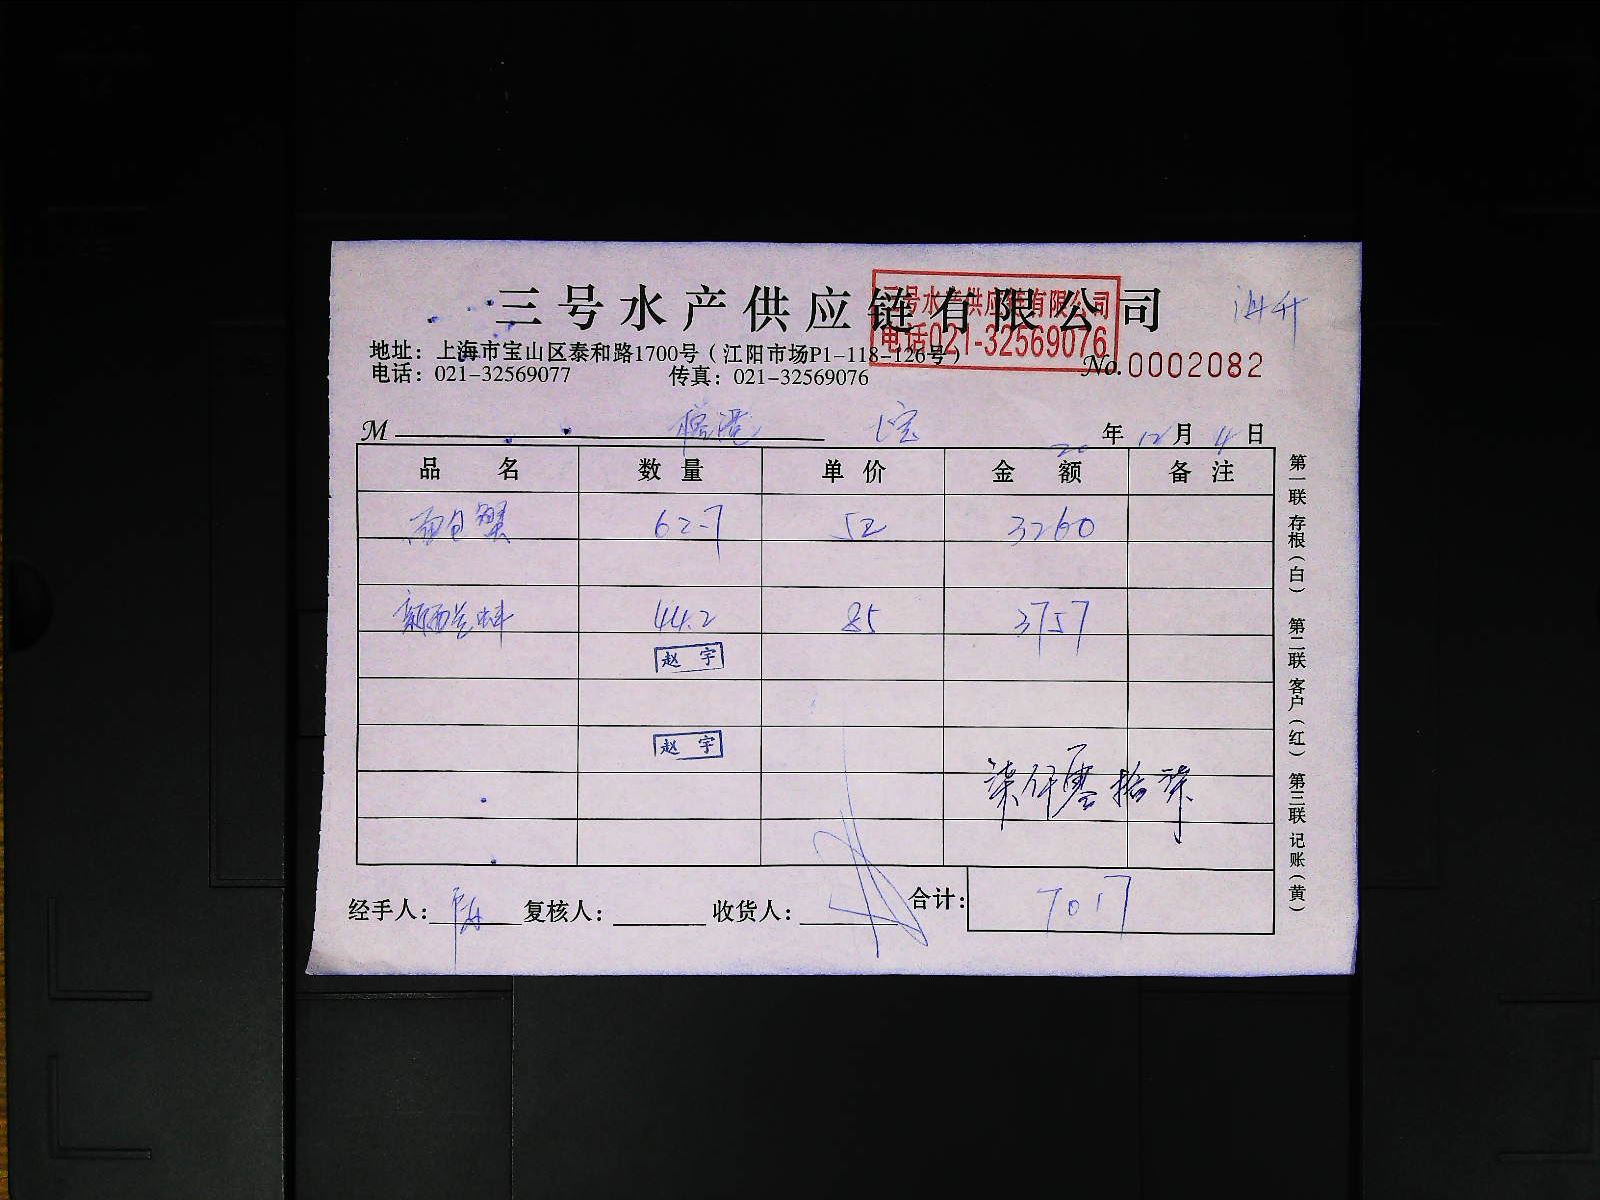 三号水产供应链有限公司
三号水产供应链有限公司
电话021-32569076
地址：上海市宝山区泰和路1700号（江阳市场P1-118-126号）
电话：021-32569077 传真：021-32569076
No.0002082
M 20年12月4日
品名 数量 单价 金额 备注
面包蟹 62.7 52 3260
新西兰蚌 44.2 85 3757
赵宇
赵宇
柒仟零拾柒
经手人： 复核人： 收货人： 合计： 7017
第一联 存根（白） 第二联 客户（红） 第三联 记账（黄）